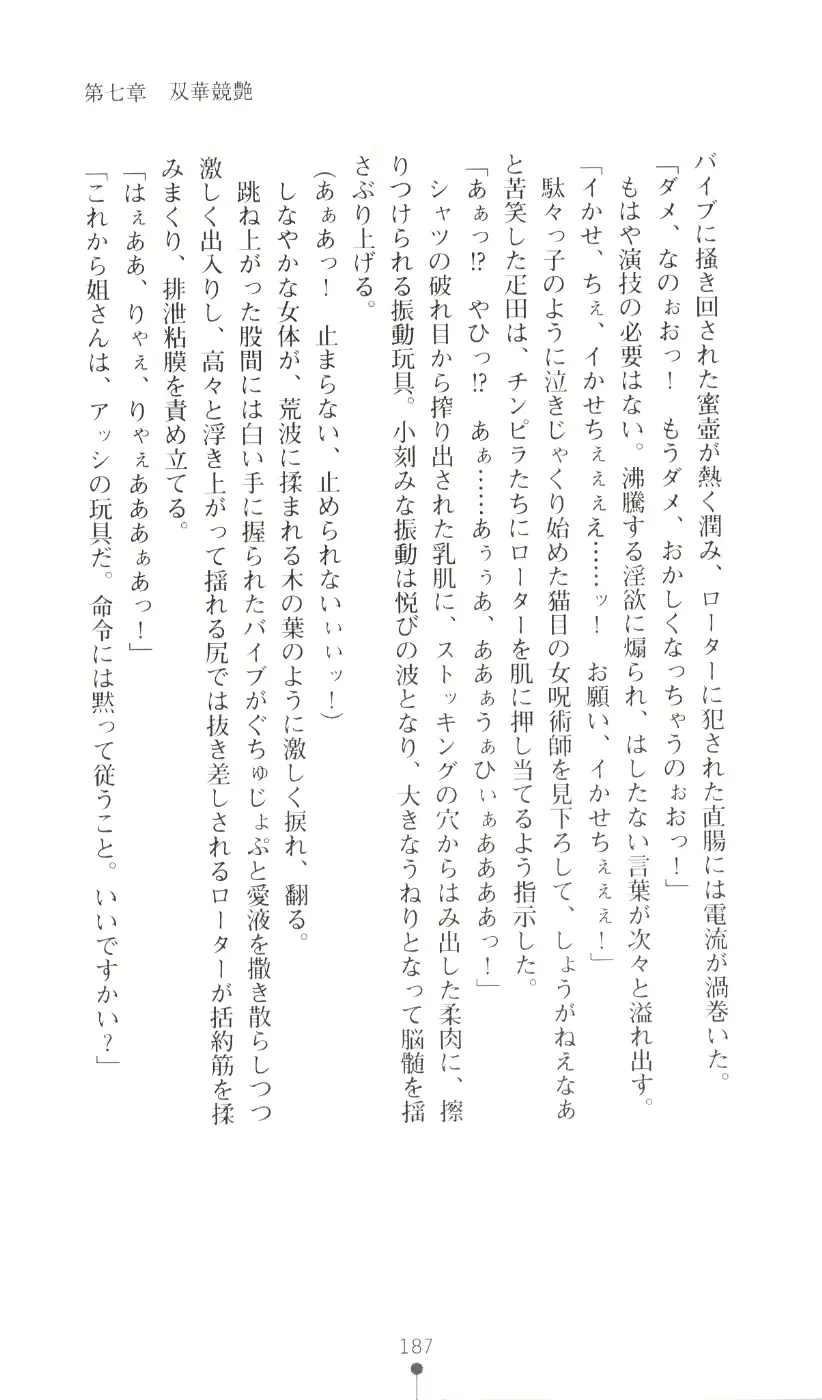 第七章　双華競艶
バイブに掻き回された蜜壺が熱く潤み、ローターに犯された直腸には電流が渦巻いた。
「ダメ、なのぉおっ！　もうダメ、おかしくなっちゃうのぉおっ！」
もはや演技の必要はない。沸騰する淫欲に煽られ、はしたない言葉が次々と溢れ出す。
「イかせ、ちぇ、イかせちぇぇぇえ……ッ！　お願い、イかせちぇぇぇ！」
駄々っ子のように泣きじゃくり始めた猫目の女呪術師を見下ろして、しょうがねえなぁ
と苦笑した疋田は、チンピラたちにローターを肌に押し当てるよう指示した。
「あぁっ!?　やひっ!?　あぁ……あぅぅあ、ああぁうぁひぃぁああああっ！」
シャツの破れ目から搾り出された乳肌に、ストッキングの穴からはみ出した柔肉に、擦
りつけられる振動玩具。小刻みな振動は悦びの波となり、大きなうねりとなって脳髄を揺
さぶり上げる。
（あぁあっ！　止まらない、止められないぃぃッ！）
しなやかな女体が、荒波に揉まれる木の葉のように激しく捩れ、翻る。
跳ね上がった股間には白い手に握られたバイブがぐちゅじょぷと愛液を撒き散らしつつ
激しく出入りし、高々と浮き上がって揺れる尻では抜き差しされるローターが括約筋を揉
みまくり、排泄粘膜を責め立てる。
「はぇああ、りゃぇ、りゃぇあああぁあっ！」
「これから姐さんは、アッシの玩具だ。命令には黙って従うこと。いいですかい？」
187